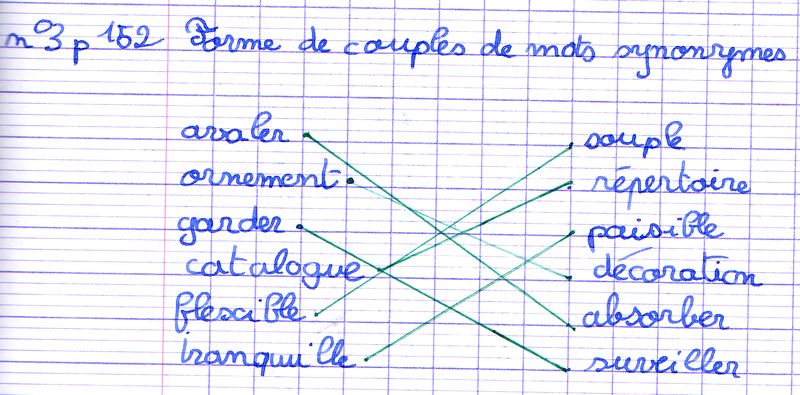 n°3 p 152 Forme de couples de mots synonymes
avaler souple
ornement répertoire
garder paisible
catalogue décoration
flexible absorber
tranquille surveiller